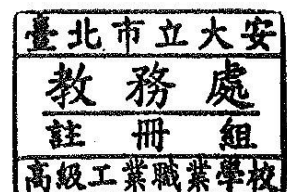 臺北市立大安
教務處
註冊組
高級工業職業學校